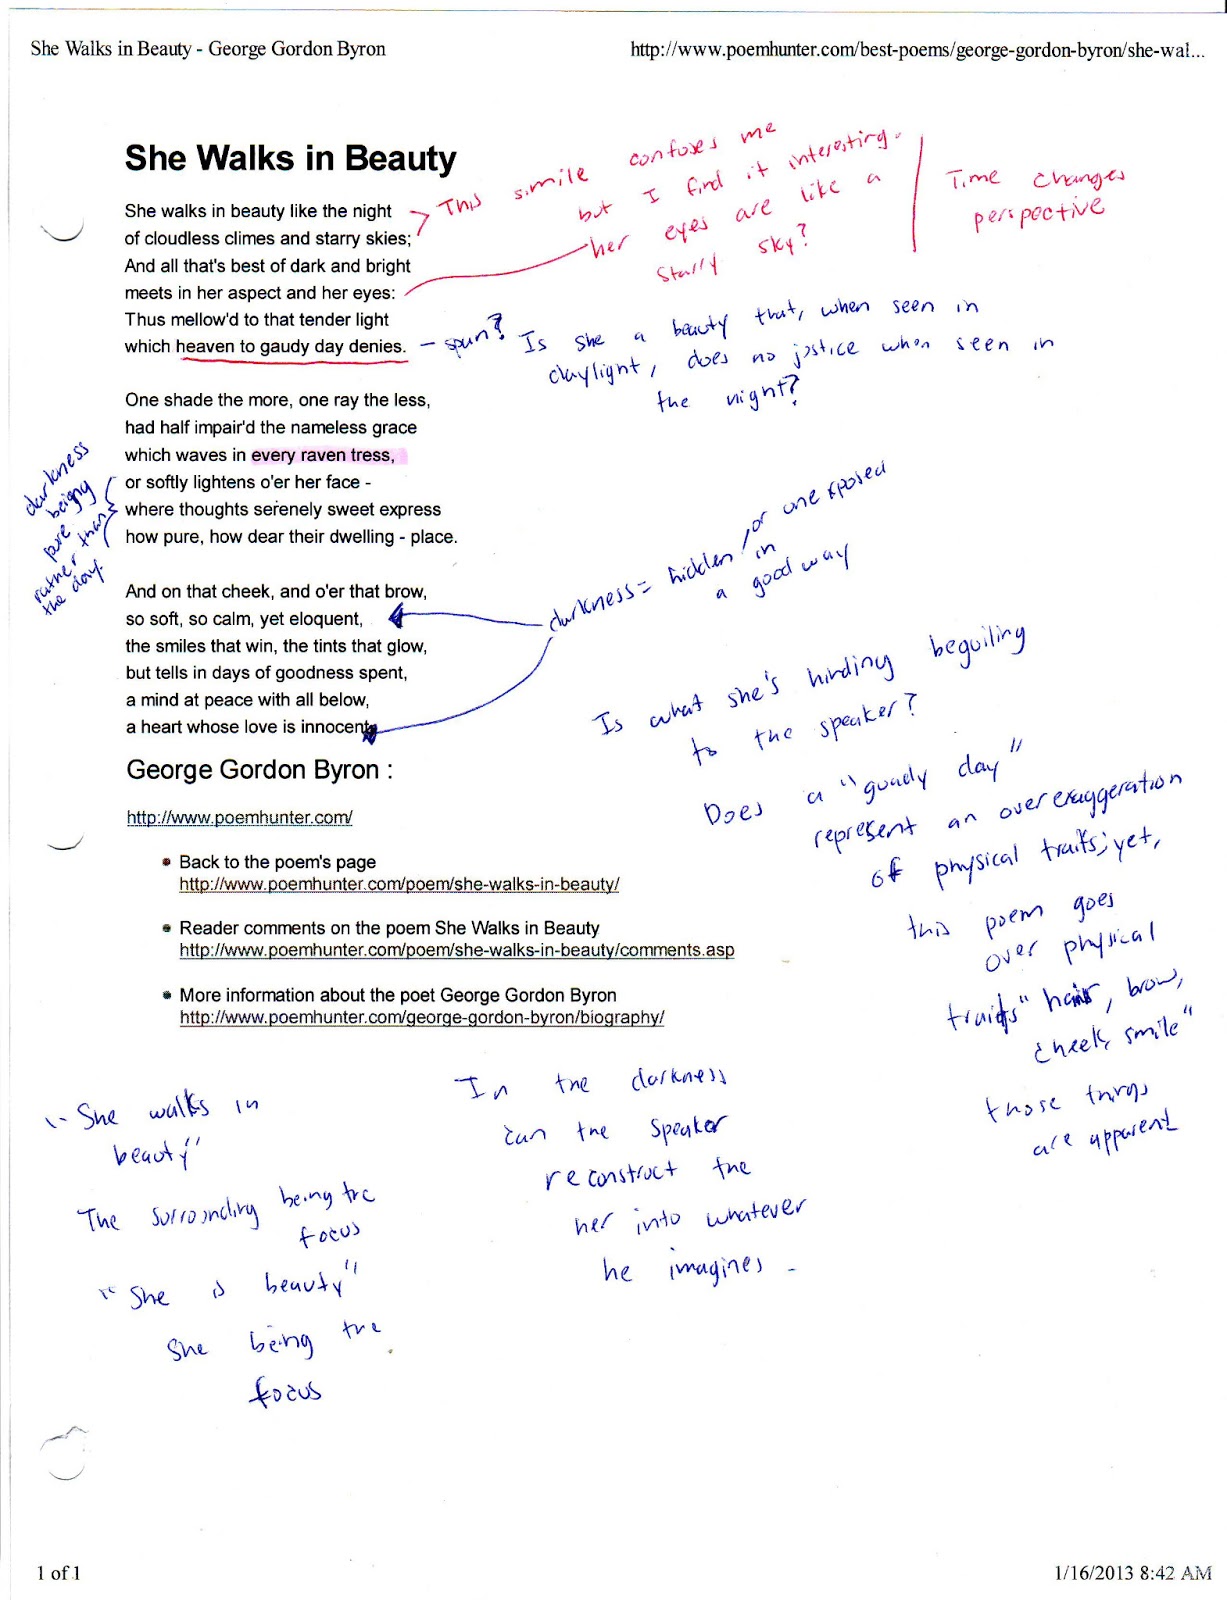 She Walks in Beauty - George Gordon Byron
http://www.poemhunter.com/best-poems/george-gordon-byron/she-wal...
She Walks in Beauty
She walks in beauty like the night
of cloudless climes and starry skies;
And all that's best of dark and bright
meets in her aspect and her eyes:
Thus mellow'd to that tender light
which heaven to gaudy day denies.
This simile confuses me
but I find it interesting.
her eyes are like a
starry sky?
Time changes
perspective
Is she a beauty that, when seen in
daylight, does no justice when seen in
the night?
One shade the more, one ray the less,
had half impair'd the nameless grace
which waves in every raven tress,
or softly lightens o'er her face -
where thoughts serenely sweet express
how pure, how dear their dwelling - place.
darkness
beigng
pure
rather than
the day.
And on that cheek, and o'er that brow,
so soft, so calm, yet eloquent,
the smiles that win, the tints that glow,
but tells in days of goodness spent,
a mind at peace with all below,
a heart whose love is innocent
darkness = hidden / or one exposed
in
a good way
Is what she's hinding beguiling
to the speaker?
Does a "guady day"
represent an over exaggeration
of physical traits; yet,
this poem goes
over physical
traits "hair, brow,
cheek, smile"
those things
are apparent
George Gordon Byron :
http://www.poemhunter.com/
• Back to the poem's page
http://www.poemhunter.com/poem/she-walks-in-beauty/
• Reader comments on the poem She Walks in Beauty
http://www.poemhunter.com/poem/she-walks-in-beauty/comments.asp
• More information about the poet George Gordon Byron
http://www.poemhunter.com/george-gordon-byron/biography/
"She walks in
beauty"
The surrounding being the
focus
"She is beauty"
She being the
focus
In the darkness
can the speaker
reconstruct the
her into whatever
he imagines -
1 of 1
1/16/2013 8:42 AM